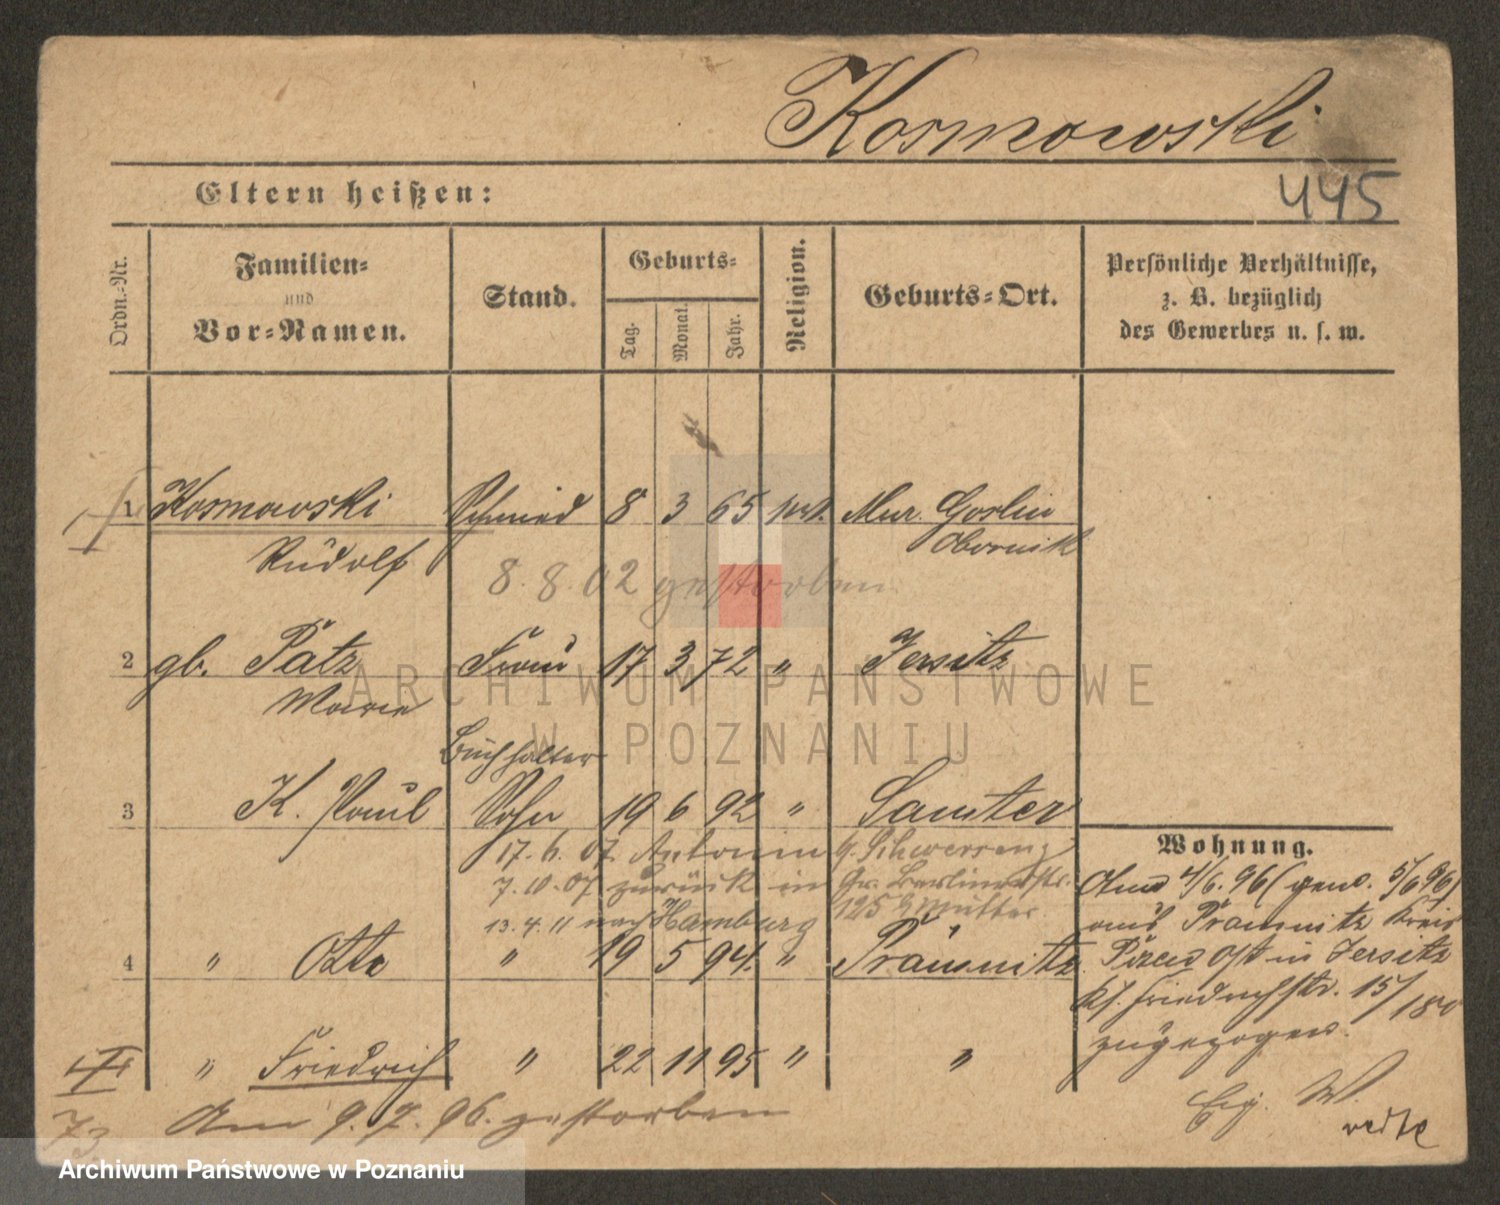 Kosmowski
Eltern heißen:
445
Ordn.-Nr.
Familien-
und
Vor-Namen.
Stand.
Geburts-
Tag.
Monat.
Jahr.
Religion.
Geburts-Ort.
Persönliche Verhältnisse,
z. B. bezüglich
des Gewerbes u. s. w.
1 Kosmowski Schmied 8 3 65 Mur. Goslin
Rudolf Obornik
8. 8. 02 gestorben
2 gb. Patz Frau 17 3 72 " Jersitz
Marie
Buchhalter
3 K. Paul Sohn 19 6 92 " Samter
17. 6. 07 Antonin b. Schwersenz
7. 10. 07 zurück in Gr. Berlinerstr.
13. 4. 11 nach Hamburg 125 Mutter
4 " Otto " 19 5 94. " Prämnitz
" Friedrich " 22 11 95 " "
Am 9. 7. 96. gestorben
73
Wohnung.
4/6. 96 (gem. 5/6 96)
aus Pramnitz Kreis
Posen Ost in Jersitz
Kl. Friedrichstr. 15/
180
zugezogen.
Eg. W.
ARCHIWUM PAŃSTWOWE
W POZNANIU
Archiwum Państwowe w Poznaniu